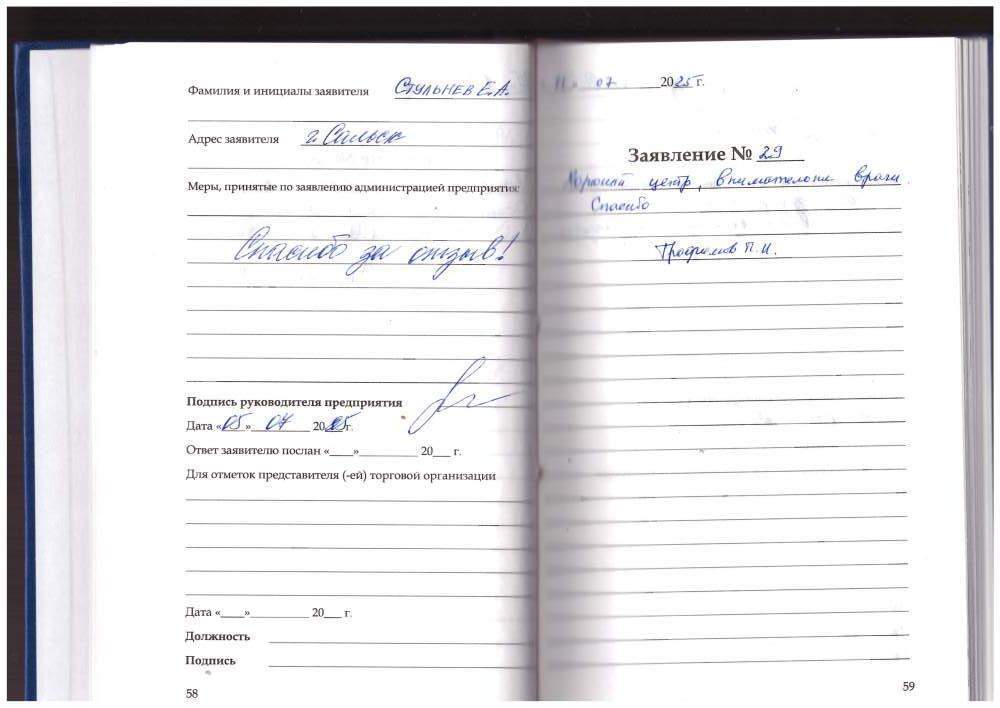 Фамилия и инициалы заявителя Стульнев Е.А.
Адрес заявителя г. Сальск
Меры, принятые по заявлению администрацией предприятия:
Спасибо за отзыв!
Подпись руководителя предприятия
Дата «05» 07 2025г.
Ответ заявителю послан «___»__________ 20___ г.
Для отметок представителя (-ей) торговой организации
Дата «____»__________ 20___ г.
Должность
Подпись
58
07 2025 г.
Заявление № 29
центр, врачи
Спасибо
П.И.
59